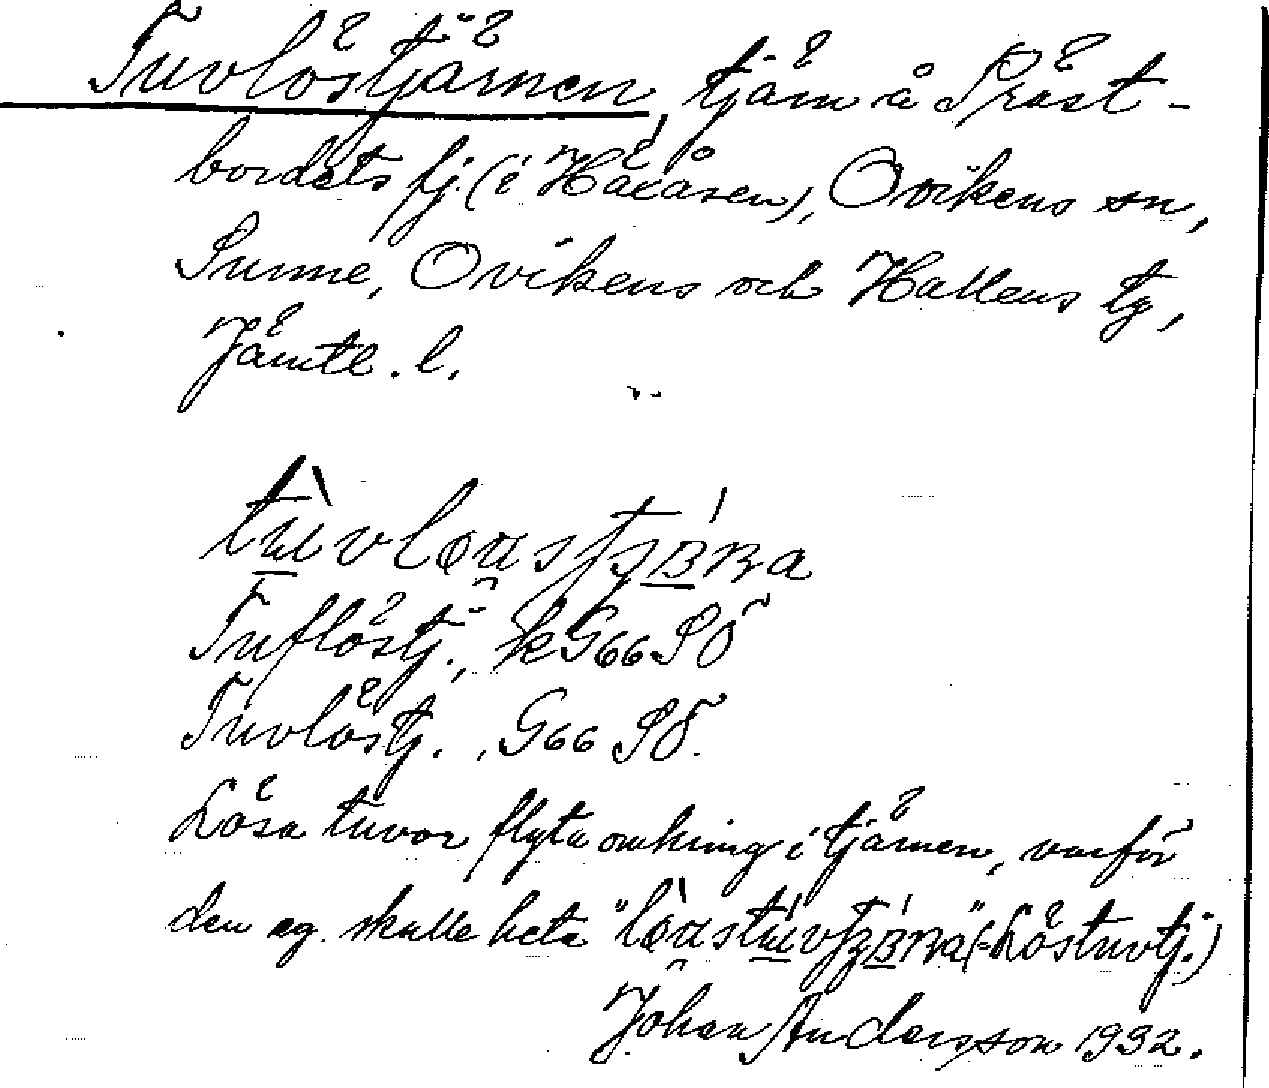 Tuvlöstjärnen, tjärn å Präst-
bordets fj. (i Häråsen), Ovikens sn,
Sunne, Ovikens och Hallens tg,
Jämtl. l.
Tuflöstj., kG66 SÖ
Tuvlöstj., G66 SÖ.
Lösa tuvor flyta omkring i tjärnen, varför
den eg. skulle heta " " (=Löstuvtj.)
Johan Andersson 1932.